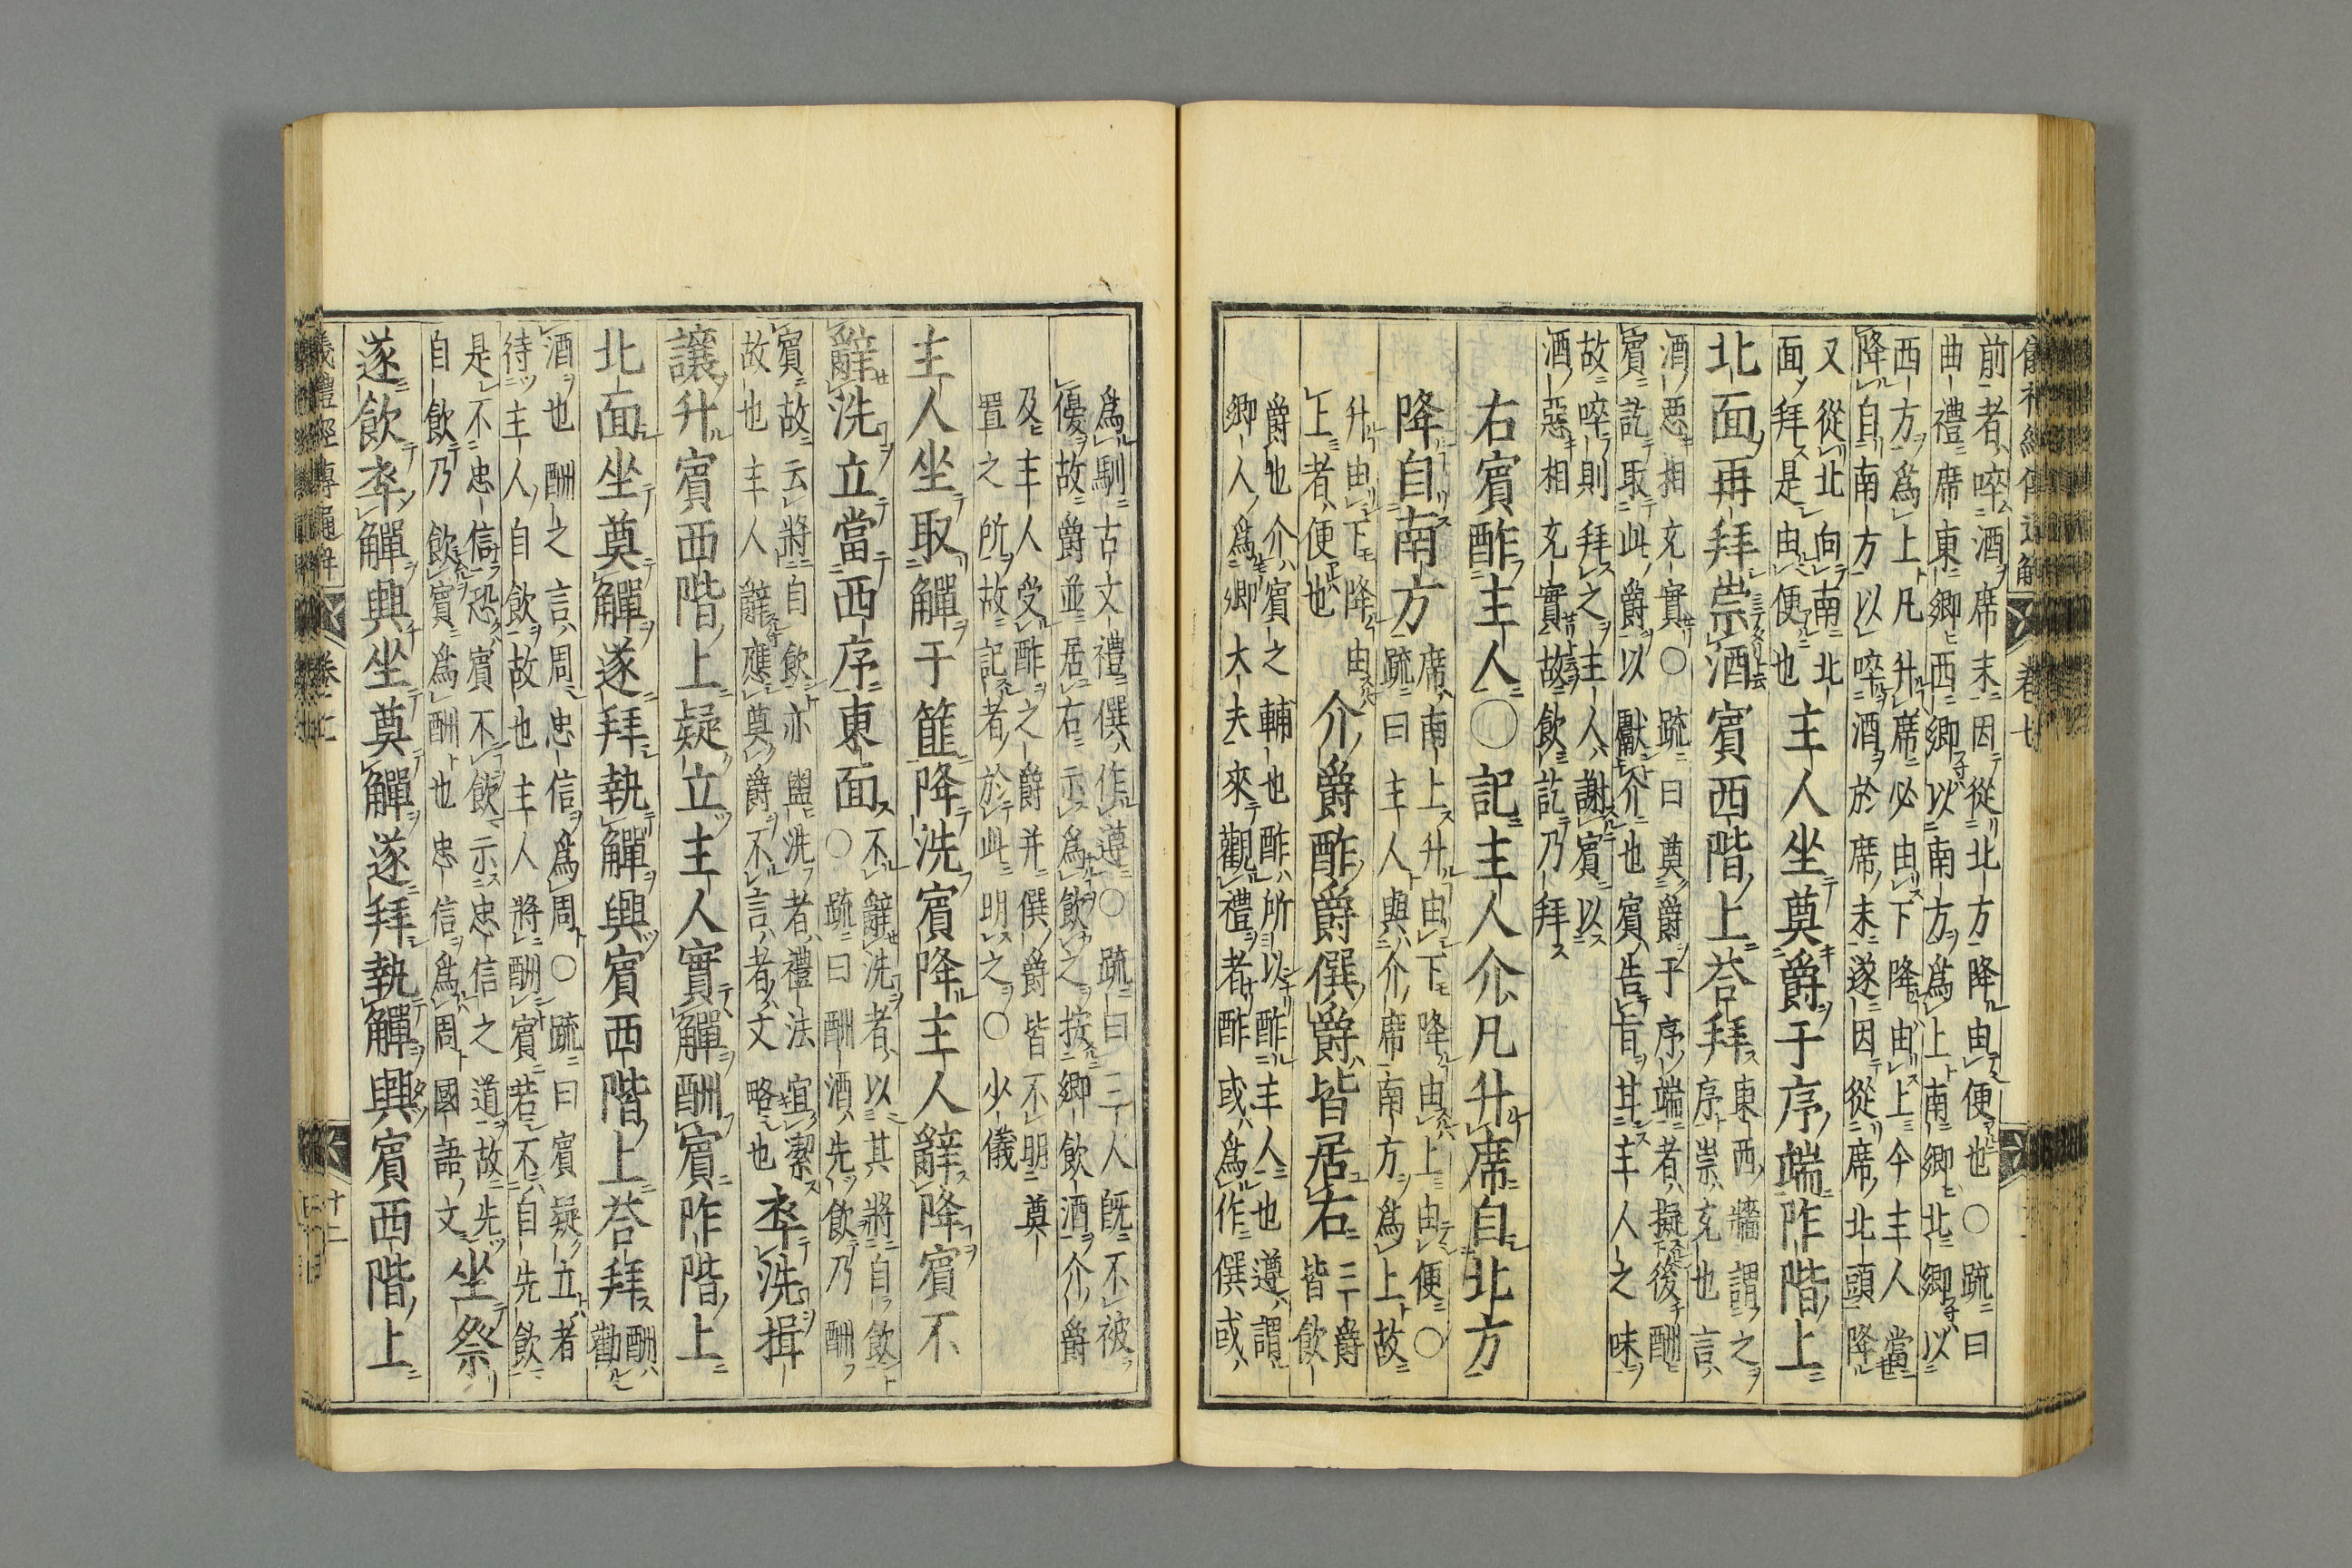 儀禮經傳通解 卷七
前者啐酒席末因從北方降由便也○疏曰
曲禮席東鄉西鄉以南方為上南鄉北鄉以
西方為上凡升席必由下降由上今主人當
降自南方以啐酒於席末遂因從席北頭降
又從北向南北
面拜是由便也
主人坐奠爵于序端阼階上
北面再拜崇酒賓西階上荅拜
東西牆謂之
序崇充也言
酒惡相充實○疏曰奠爵于序端者擬後酬
賓訖取此爵以獻介也賓告旨其主人之味
故啐則拜之主人謝賓以
酒惡相充實故飲訖乃拜
右賓酢主人○記主人介凡升席自北方
降自南方
席南上升由下降由上由便○
疏曰主人與介席南方為上故
升由下降由
上者便也
介爵酢爵僎爵皆居右
三爵
皆飲
爵也介賓之輔也酢所以酢主人也遵謂
鄉人為卿大夫來觀禮者酢或為作僎或
為馴古文禮僎作遵○疏曰三人既不被
優故爵並居右示為飲之按鄉飲酒介爵
及主人受酢之爵并僎爵皆不明奠
置之所故記者於此明之○少儀
主人坐取觶于篚降洗賓降主人辭降賓不
辭洗立當西序東面
不辭洗者以其將自飲
○疏曰酬酒先飲乃酬
賓故云將自飲亦盥洗者禮法宜潔
故也主人辭應奠爵不言者文略也
卒洗揖
讓升賓西階上疑立主人實觶酬賓阼階上
北面坐奠觶遂拜執觶興賓西階上荅拜
酬
勸
酒也酬之言周忠信為周○疏曰賓疑立者
待主人自飲故也主人將酬賓若不自先飲
是不忠信恐賓不飲示忠信之道故先
自飲乃飲賓為酬也忠信為周國語文
坐祭
遂飲卒觶興坐奠觶遂拜執觶興賓西階上
儀禮經傳通解 卷七 十二